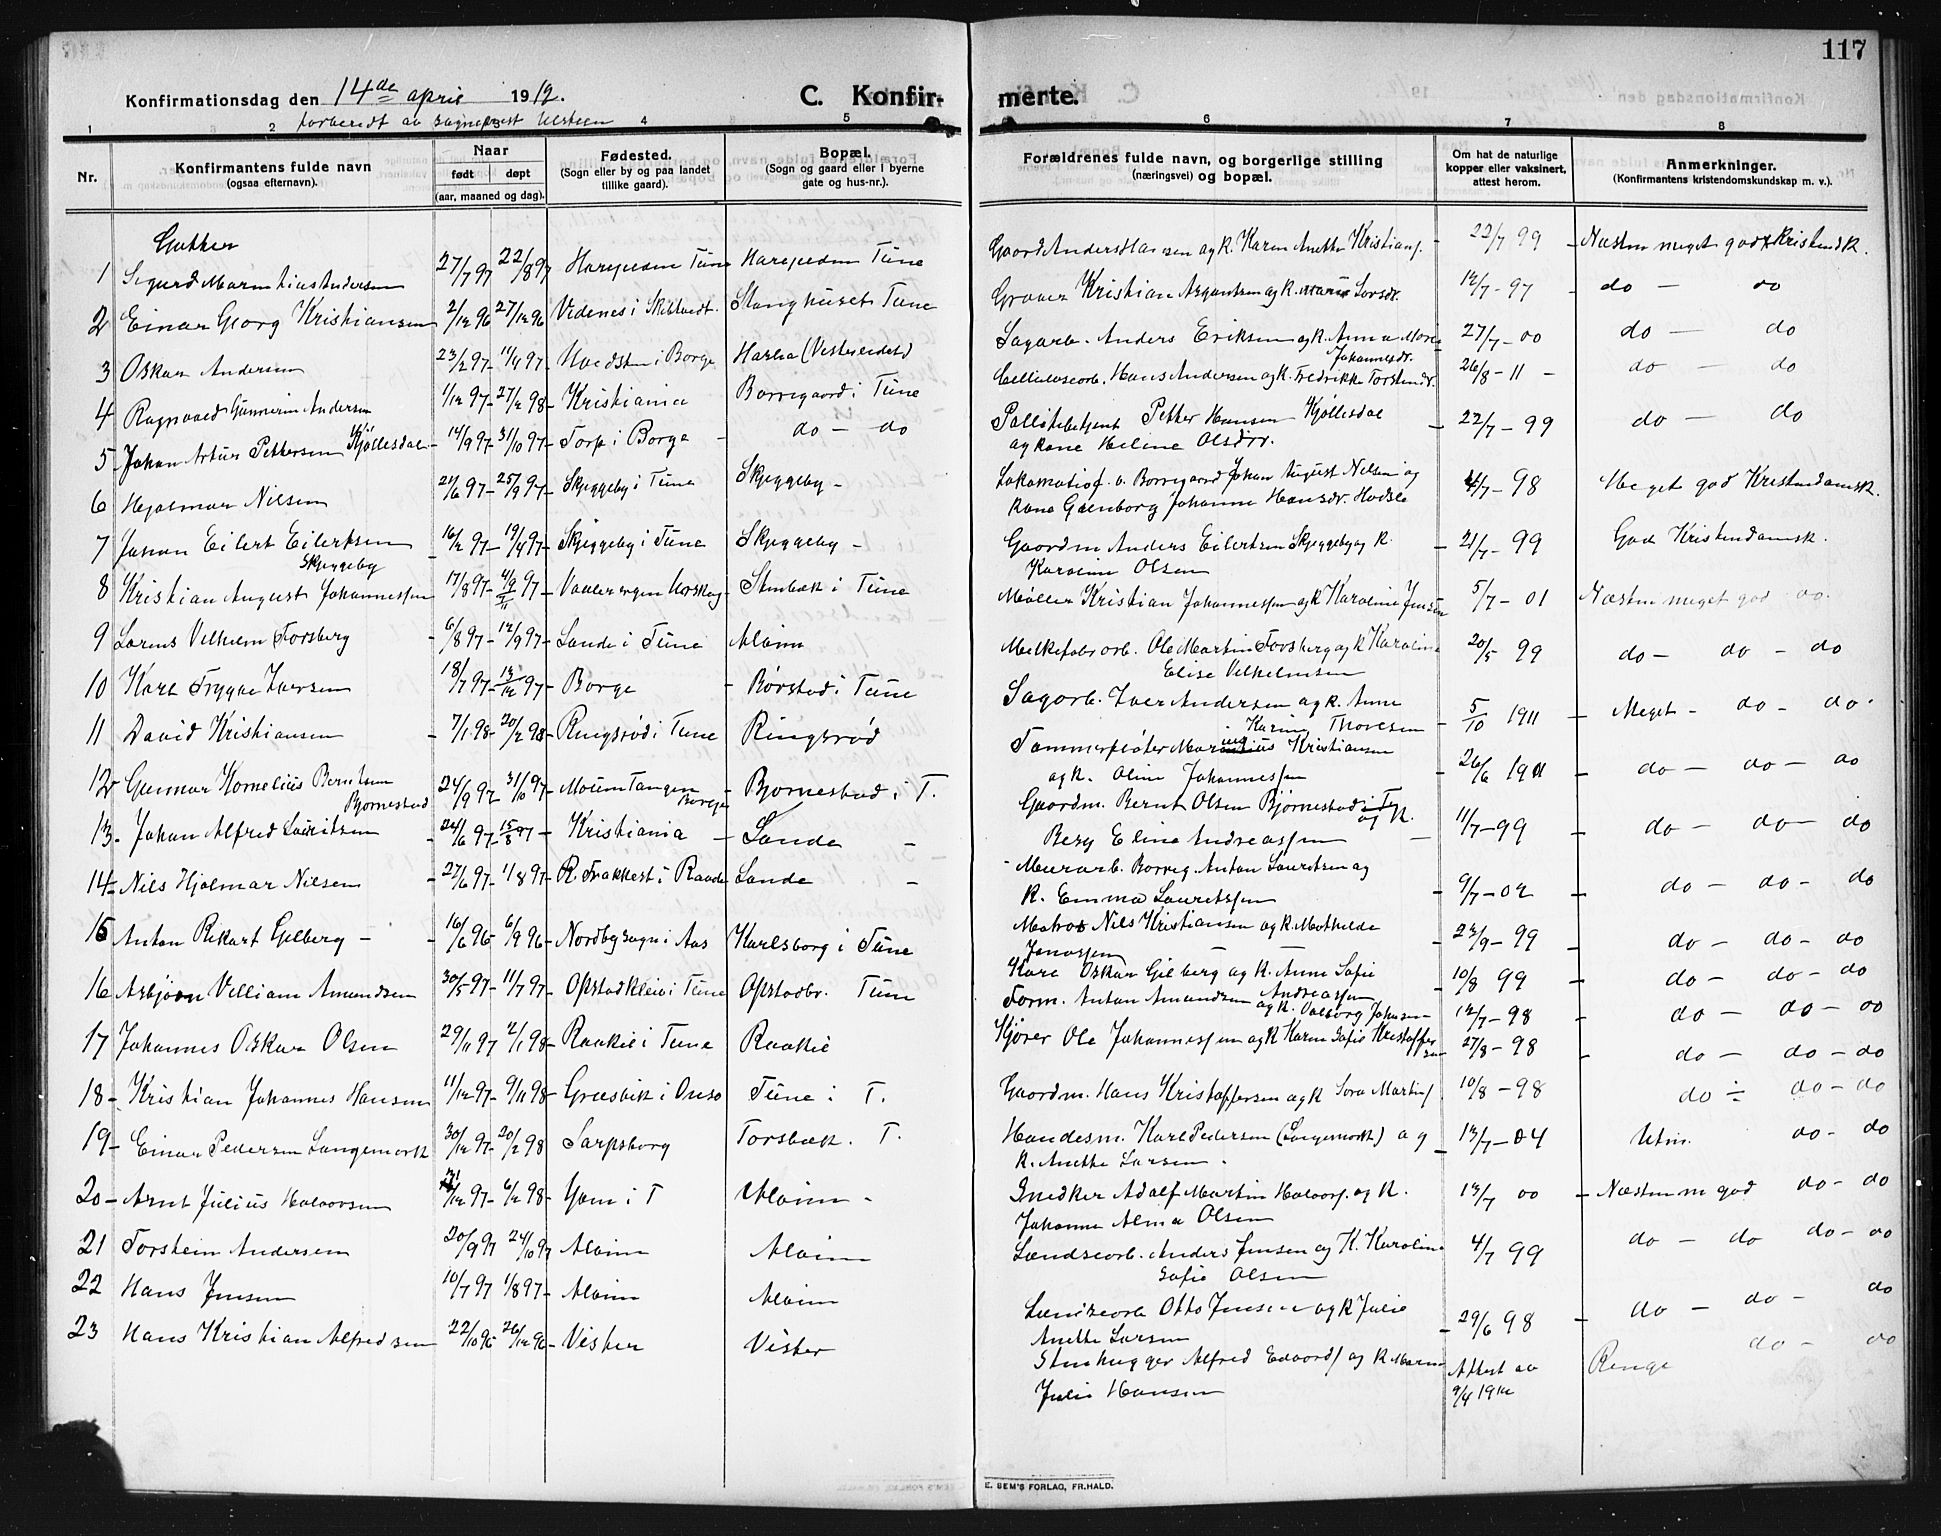 117
Konfirmationsdag den 14de april 1912.
C. Konfir- merte.
forberedt av sogneprest Ulsteen
1 2 3 4 5 6 7 8
Nr. Konfirmantens fulde navn (ogsaa efternavn). Naar født døpt (aar, maaned og dag). Fødested. (Sogn eller by og paa landet tillike gaard). Bopæl. (Sogn og gaard eller i byerne gate og hus-nr.). Forældrenes fulde navn, og borgerlige stilling (næringsvei) og bopæl. Om hat de naturlige kopper eller vaksinert, attest herom. Anmerkninger. (Konfirmantens kristendomskundskap m. v.).
Gutter
1 Sigurd Andersen 27/7 97 22/8 97 Tune Tune Gaard Anders Hansen og k. Karen Anette Kristians. 22/7 99 Næsten meget god Kristendk.
2 Einar Georg Kristiansen 2/12 96 27/12 96 Videnes i Skibtvedt Stanghuset Tune Graver Kristian og k. Marie Larsdr. 12/7 - 97 do — do
3 Oskar Andersen 23/2 97 11/4 97 i Borge Sagarb. Anders Eriksen og k. Anna Marie Johannesdr. 27/7 - 00 do — do
4 Ragnvald Gunnerin Andersen 1/12 97 - 27/2 98 - Kristiania Borregaard i Tune Cellulosearb. Hans Andersen og k. Fredrikke Torstensdr. 26/8 - 11 - do — do
5 Johan Artur Pettersen Kjøllesdal - 14/9 97 - 31/10 97 - Torp i Borge - do — do Petter Hansen Kjøllesdal og kone Helene Olsdr. - 22/7 - 99 do — do
6 Hjalmar Nilsen 21/6 97 - 25/9 97 - Skjeggeby i Tune Skjeggeby - Lokomotivf. v. Borregaard Johan August Nilsen og kone Gunborg Johanne Hansdr. 4/7 - 98 Meget god Kristendomsk.
7 Johan Eilert Eilertsen Skjeggeby 16/2 97 - 19/4 97 - Skjeggeby i Tune Skjeggeby - Gaardm. Anders Eilertsen Skjeggeby og k. Karoline Olsen - 21/7 - 99 God Kristendomsk.
8 Kristian August Johannessen 17/8 97 - 97 - Vaalerengen Stenbæk i Tune Møller Kristian Johannessen og k Karoline Jensen 5/7 - 01 Næsten meget god do.
9 Lorens Vilhelm Forsberg - 6/8 97 - 12/9 97 - Sande i Tune Alvim Melkefabr. arb. Ole Martin Forsberg og k Karoline Elise Vilhelmsen 20/5 99 do - do - do
10 Karl Trygve Iversen 18/7 97 - 13/12 97 - Borge - Børstad i Tune Sagarb. Iver Andersen og k. Anne Karine Thoresen - 5/10 1911 - Meget - do - do.
11 David Kristiansen - 7/1 98 - 20/2 98 - Ringsrød i Tune Ringsrød Tømmerfløter Marinius Kristiansen og k. Oline Johannessen - 26/6 1911 - do — do — do
12 Gunnar Kornelius Berntsen Bjørnestad 24/9 97 31/10 97 - Moum Tangen Borge - Bjørnestad i T. Gaardm. Bernt Olsen Bjørnestad i T. og k. Berg Elina Andreassen 11/7 - 99 - do — do — do
13. Johan Alfred Lauritsen - 24/6 97 - 15/8 97 - Kristiania - Sande - - Murarb. Borreg. Anton Lauritsen og k. Emma Lauritssen - 9/7 - 02 - do — do - do
14 - Nils Hjalmar Nilsen - 27/6 97 - 1/8 97 - i Raade Sande - Matros Nils Kristiansen og k. Mathilde Jonassen - 23/9 - 99 - do — do - do
15 Anton Rikart Gilberg - - 16/6 96 - 6/9 96 - Nordby sogn i Aas Karlsborg i Tune Kare Oskar Gilberg og k. Anne Sofie Andreassen - 10/8 99 - do — do - do
16 Asbjørn Villiam Amundsen 30/5 97 - 11/7 97 - Opstadkleiv i Tune Opstadbr. Tune Form. Anton Amundsen og k. Valborg Johnsen - 12/7 - 98 do — do - do
17 Johannes Oskar Olsen 29/11 97 2/1 98 - Raakil i Tune Raakil Kjører Ole Johannessen og k Karen Sofie Kristoffersen 27/8 - 98 - do — do - do
18 - Kristian Johannes Hansen 11/12 97 - 9/11 98 - Græsvik i Onsø Tune i T. Gaardm. Hans Kristoffersen og k Sora Martins 10/8 - 98 do ÷ do - do
19 - Einar Pedersen Langemark 30/12 97 - 20/2 98 Sarpsborg Torsbæk. T. Handesm. Karl Pedersen (Langemark) og k. Anette Larsen. - 13/7 - 04 Utm. do - do
20 - Arnt Julius Halvorsen 31/12 97 - 6/2 98 - i T Alvim - Snedker Adolf Martin Halvors. og k. Johanne Alma Olsen 13/7 00 - Næsten m god do - do
21 Torstein Andersen 20/9 97 24/10 97 Alvim Alvim Landsearb. Anders Jensen og K. Karoline Sofie Olsen 4/7 99 do — do do - do
22 Hans Jensen 10/7 97 1/8 97 - Alvim Alvim Otto Jensen og k Julie Anette Larsen - 29/6 98 - do — do - do
23 Hans Kristian Alfredsen 22/10 96 - 26/12 96 - Vister Vister Stenhugger Alfred Edvards og k Maren Julie Hansen Attest av 9/4 1912 do - do
E. SEM'S FORLAG, FR.HALD.